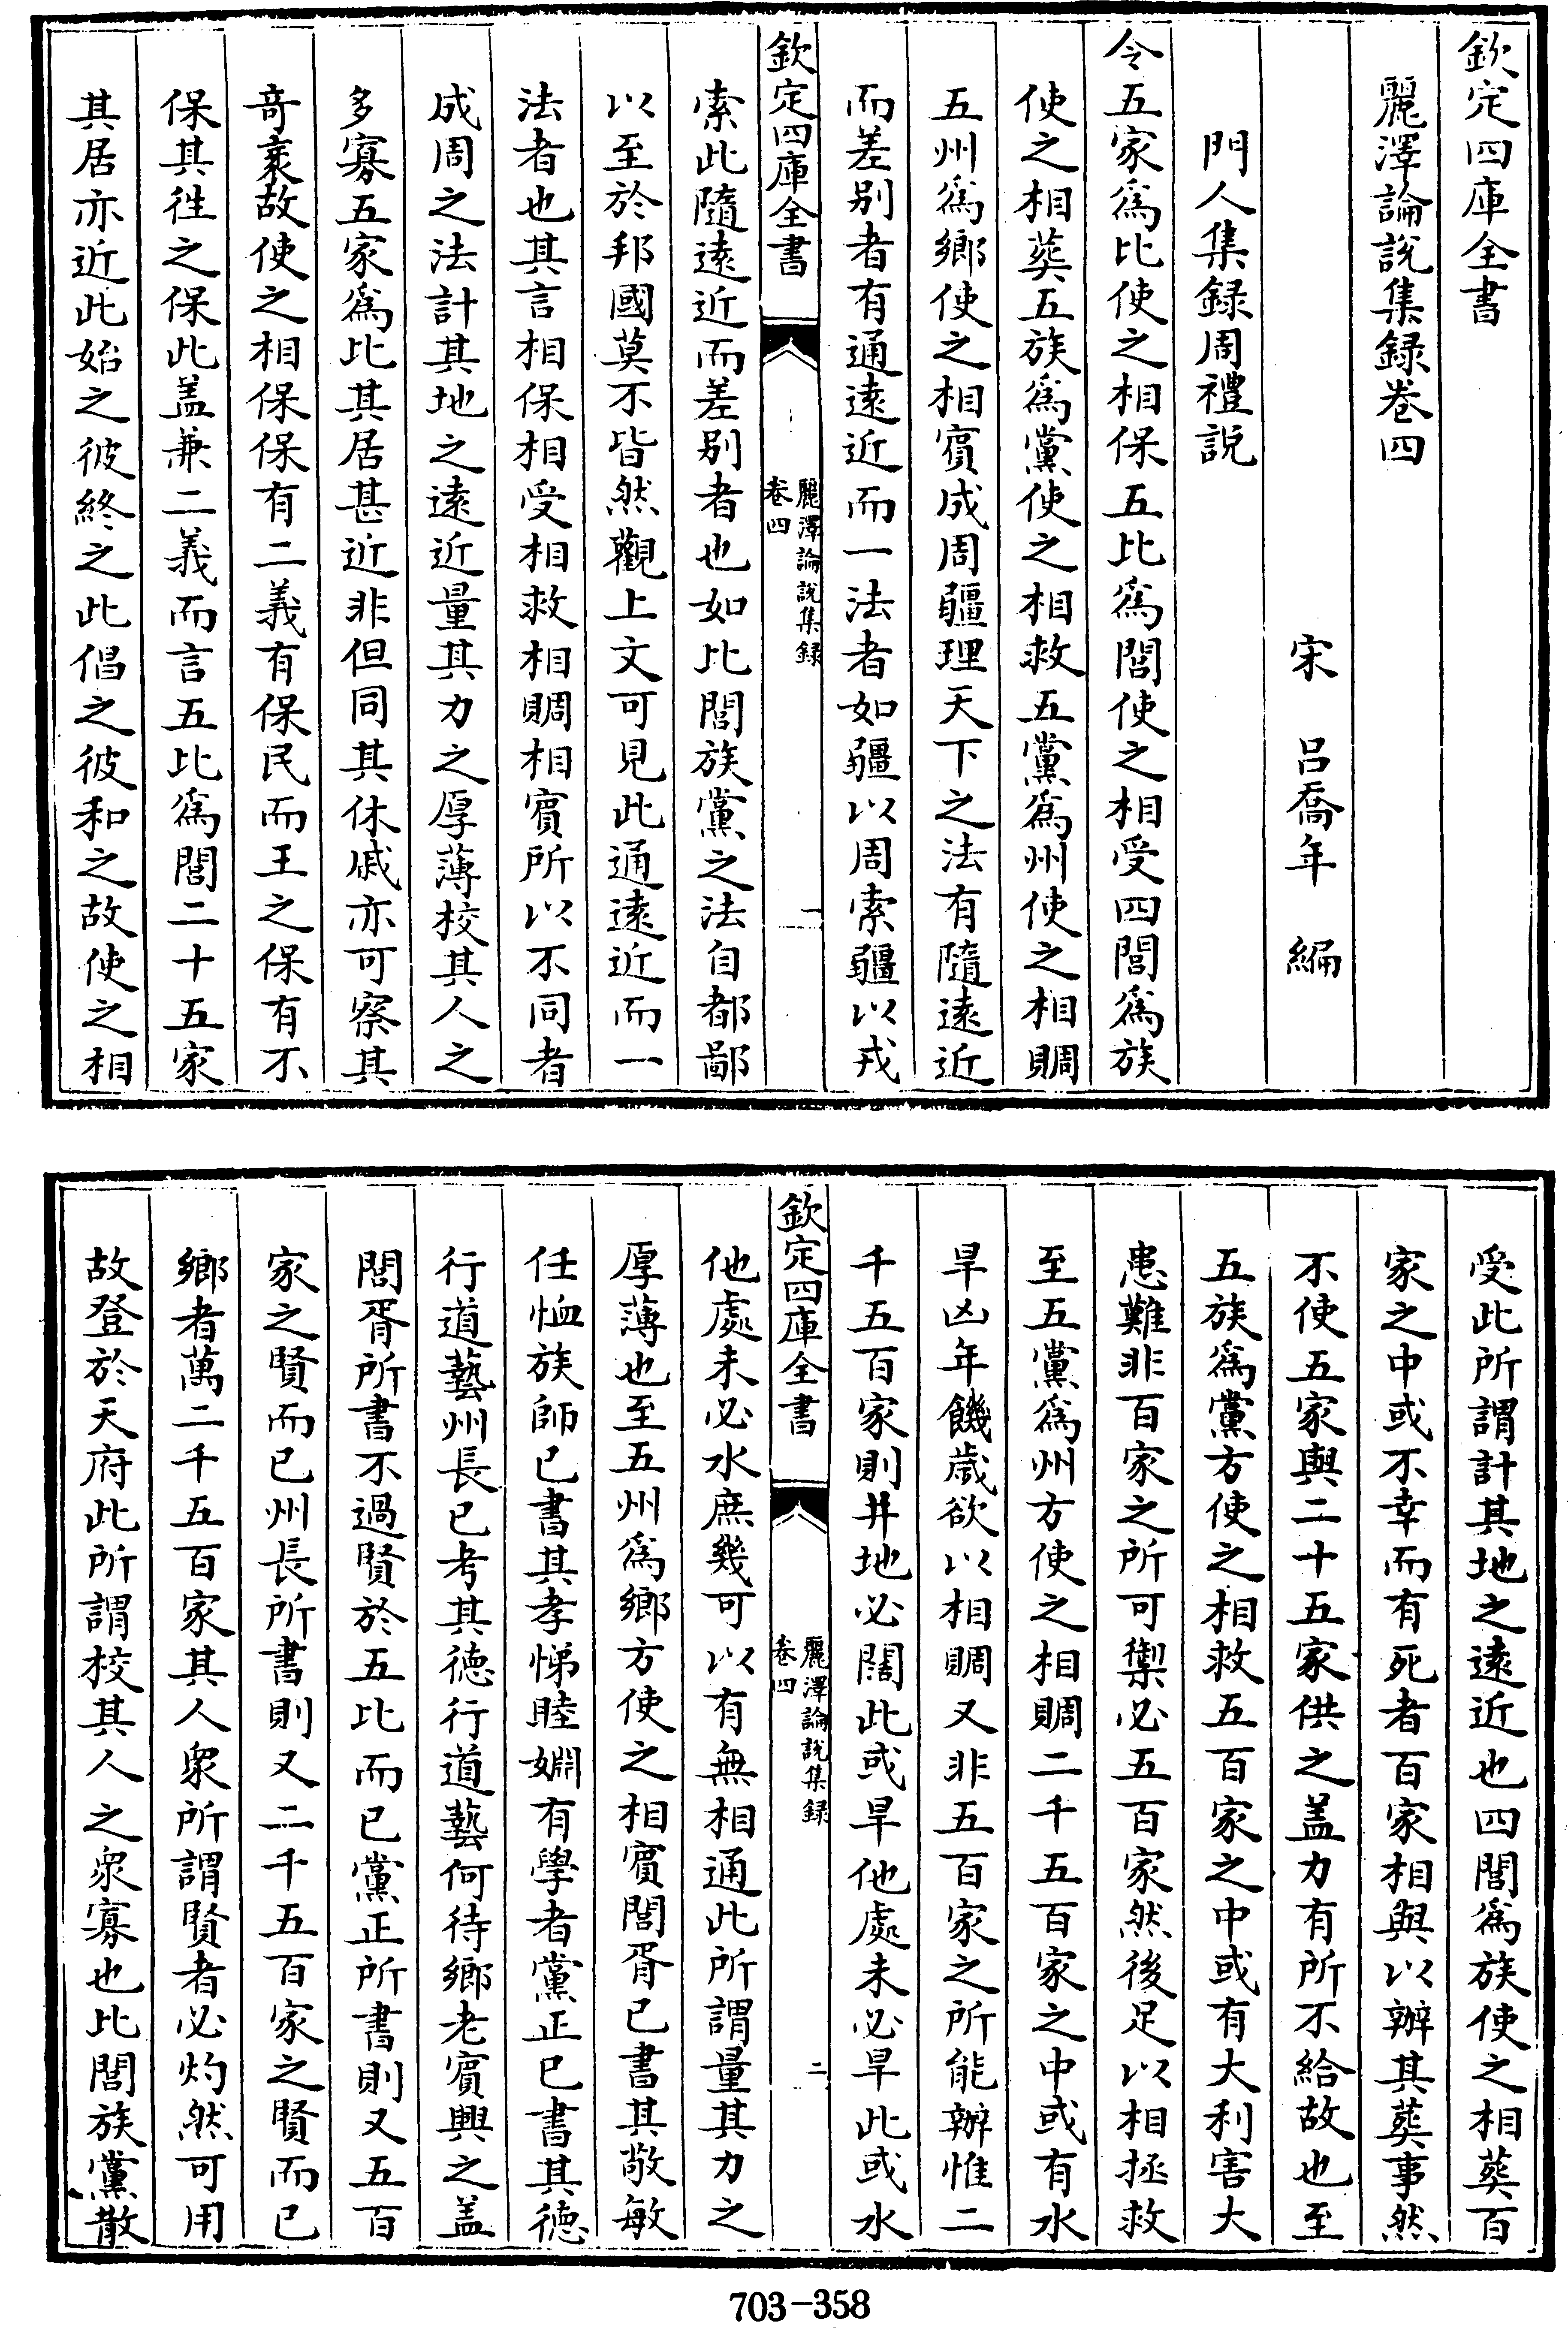 欽定四庫全書
麗澤論説集録卷四
宋　吕喬年　編
門人集録周禮説
令五家爲比使之相保五比爲閭使之相受四閭爲族
使之相葬五族爲黨使之相救五黨爲州使之相賙
五州爲鄉使之相賓成周疆理天下之法有隨逺近
而差别者有通逺近而一法者如疆以周索疆以戎
欽定四庫全書
麗澤論説集録
卷四
一
索此隨逺近而差别者也如比閭族黨之法自都鄙
以至於邦國莫不皆然觀上文可見此通逺近而一
法者也其言相保相受相救相賙相賓所以不同者
成周之法計其地之逺近量其力之厚薄校其人之
多寡五家爲比其居甚近非但同其休戚亦可察其
竒衺故使之相保保有二義有保民而王之保有不
保其徃之保此盖兼二義而言五比爲閭二十五家
其居亦近此始之彼終之此倡之彼和之故使之相
受此所謂計其地之逺近也四閭爲族使之相葬百
家之中或不幸而有死者百家相與以辦其葬事然
不使五家與二十五家供之盖力有所不給故也至
五族爲黨方使之相救五百家之中或有大利害大
患難非百家之所可禦必五百家然後足以相拯救
至五黨爲州方使之相賙二千五百家之中或有水
旱凶年饑歲欲以相賙又非五百家之所能辦惟二
千五百家則井地必闊此或旱他處未必旱此或水
欽定四庫全書
麗澤論説集録
卷四
二
他處未必水庶幾可以有無相通此所謂量其力之
厚薄也至五州爲鄉方使之相賓閭胥已書其敬敏
任恤族師已書其孝悌睦婣有學者黨正已書其德
行道藝州長已考其德行道藝何待鄉老賓興之盖
閭胥所書不過賢於五比而已黨正所書則又五百
家之賢而已州長所書則又二千五百家之賢而已
鄉者萬二千五百家其人衆所謂賢者必灼然可用
故登於天府此所謂校其人之衆寡也比閭族黨散
703-358